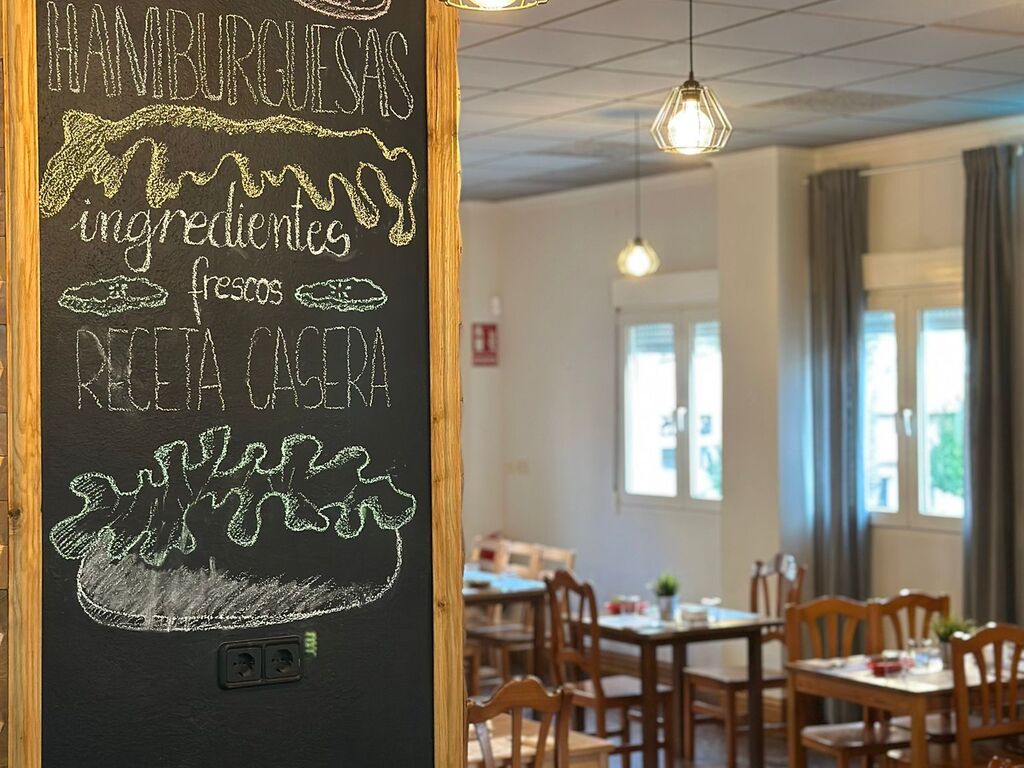 HAMBURGUESAS
ingredientes
frescos
RECETA CASERA